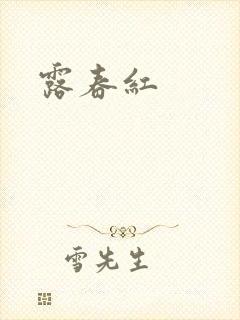 露春紅
雪先生